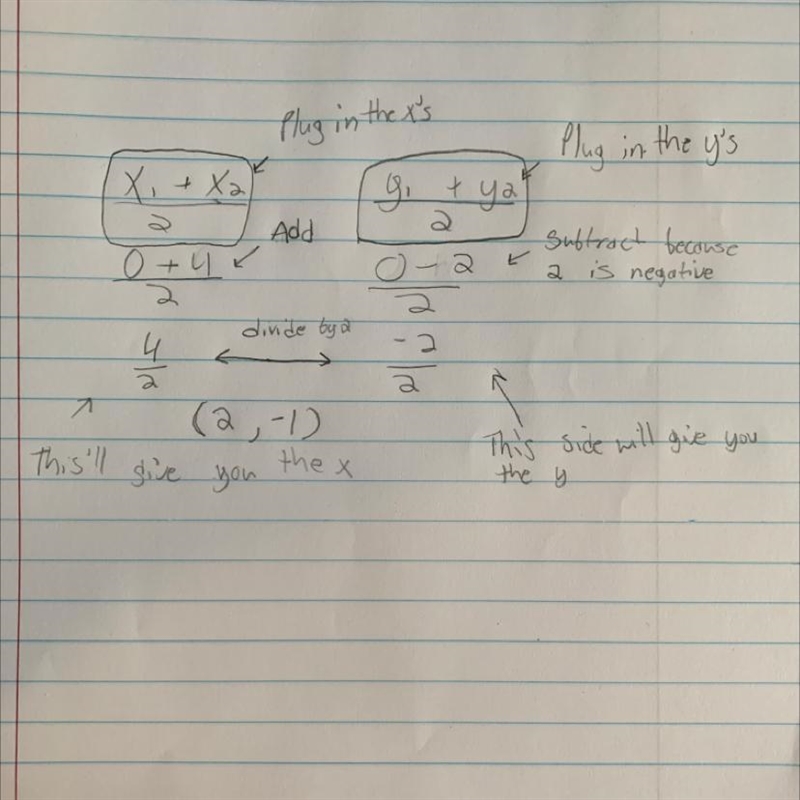 Plug in the x's
Plug in the y's
X₁ + X₂
2
y₁ + y₂
2
Add
Subtract because
2 is negative
0 + 4
2
0 - 2
2
divide by 2
4
2
-2
2
(2, -1)
This'll give you the x
This side will give you
the y